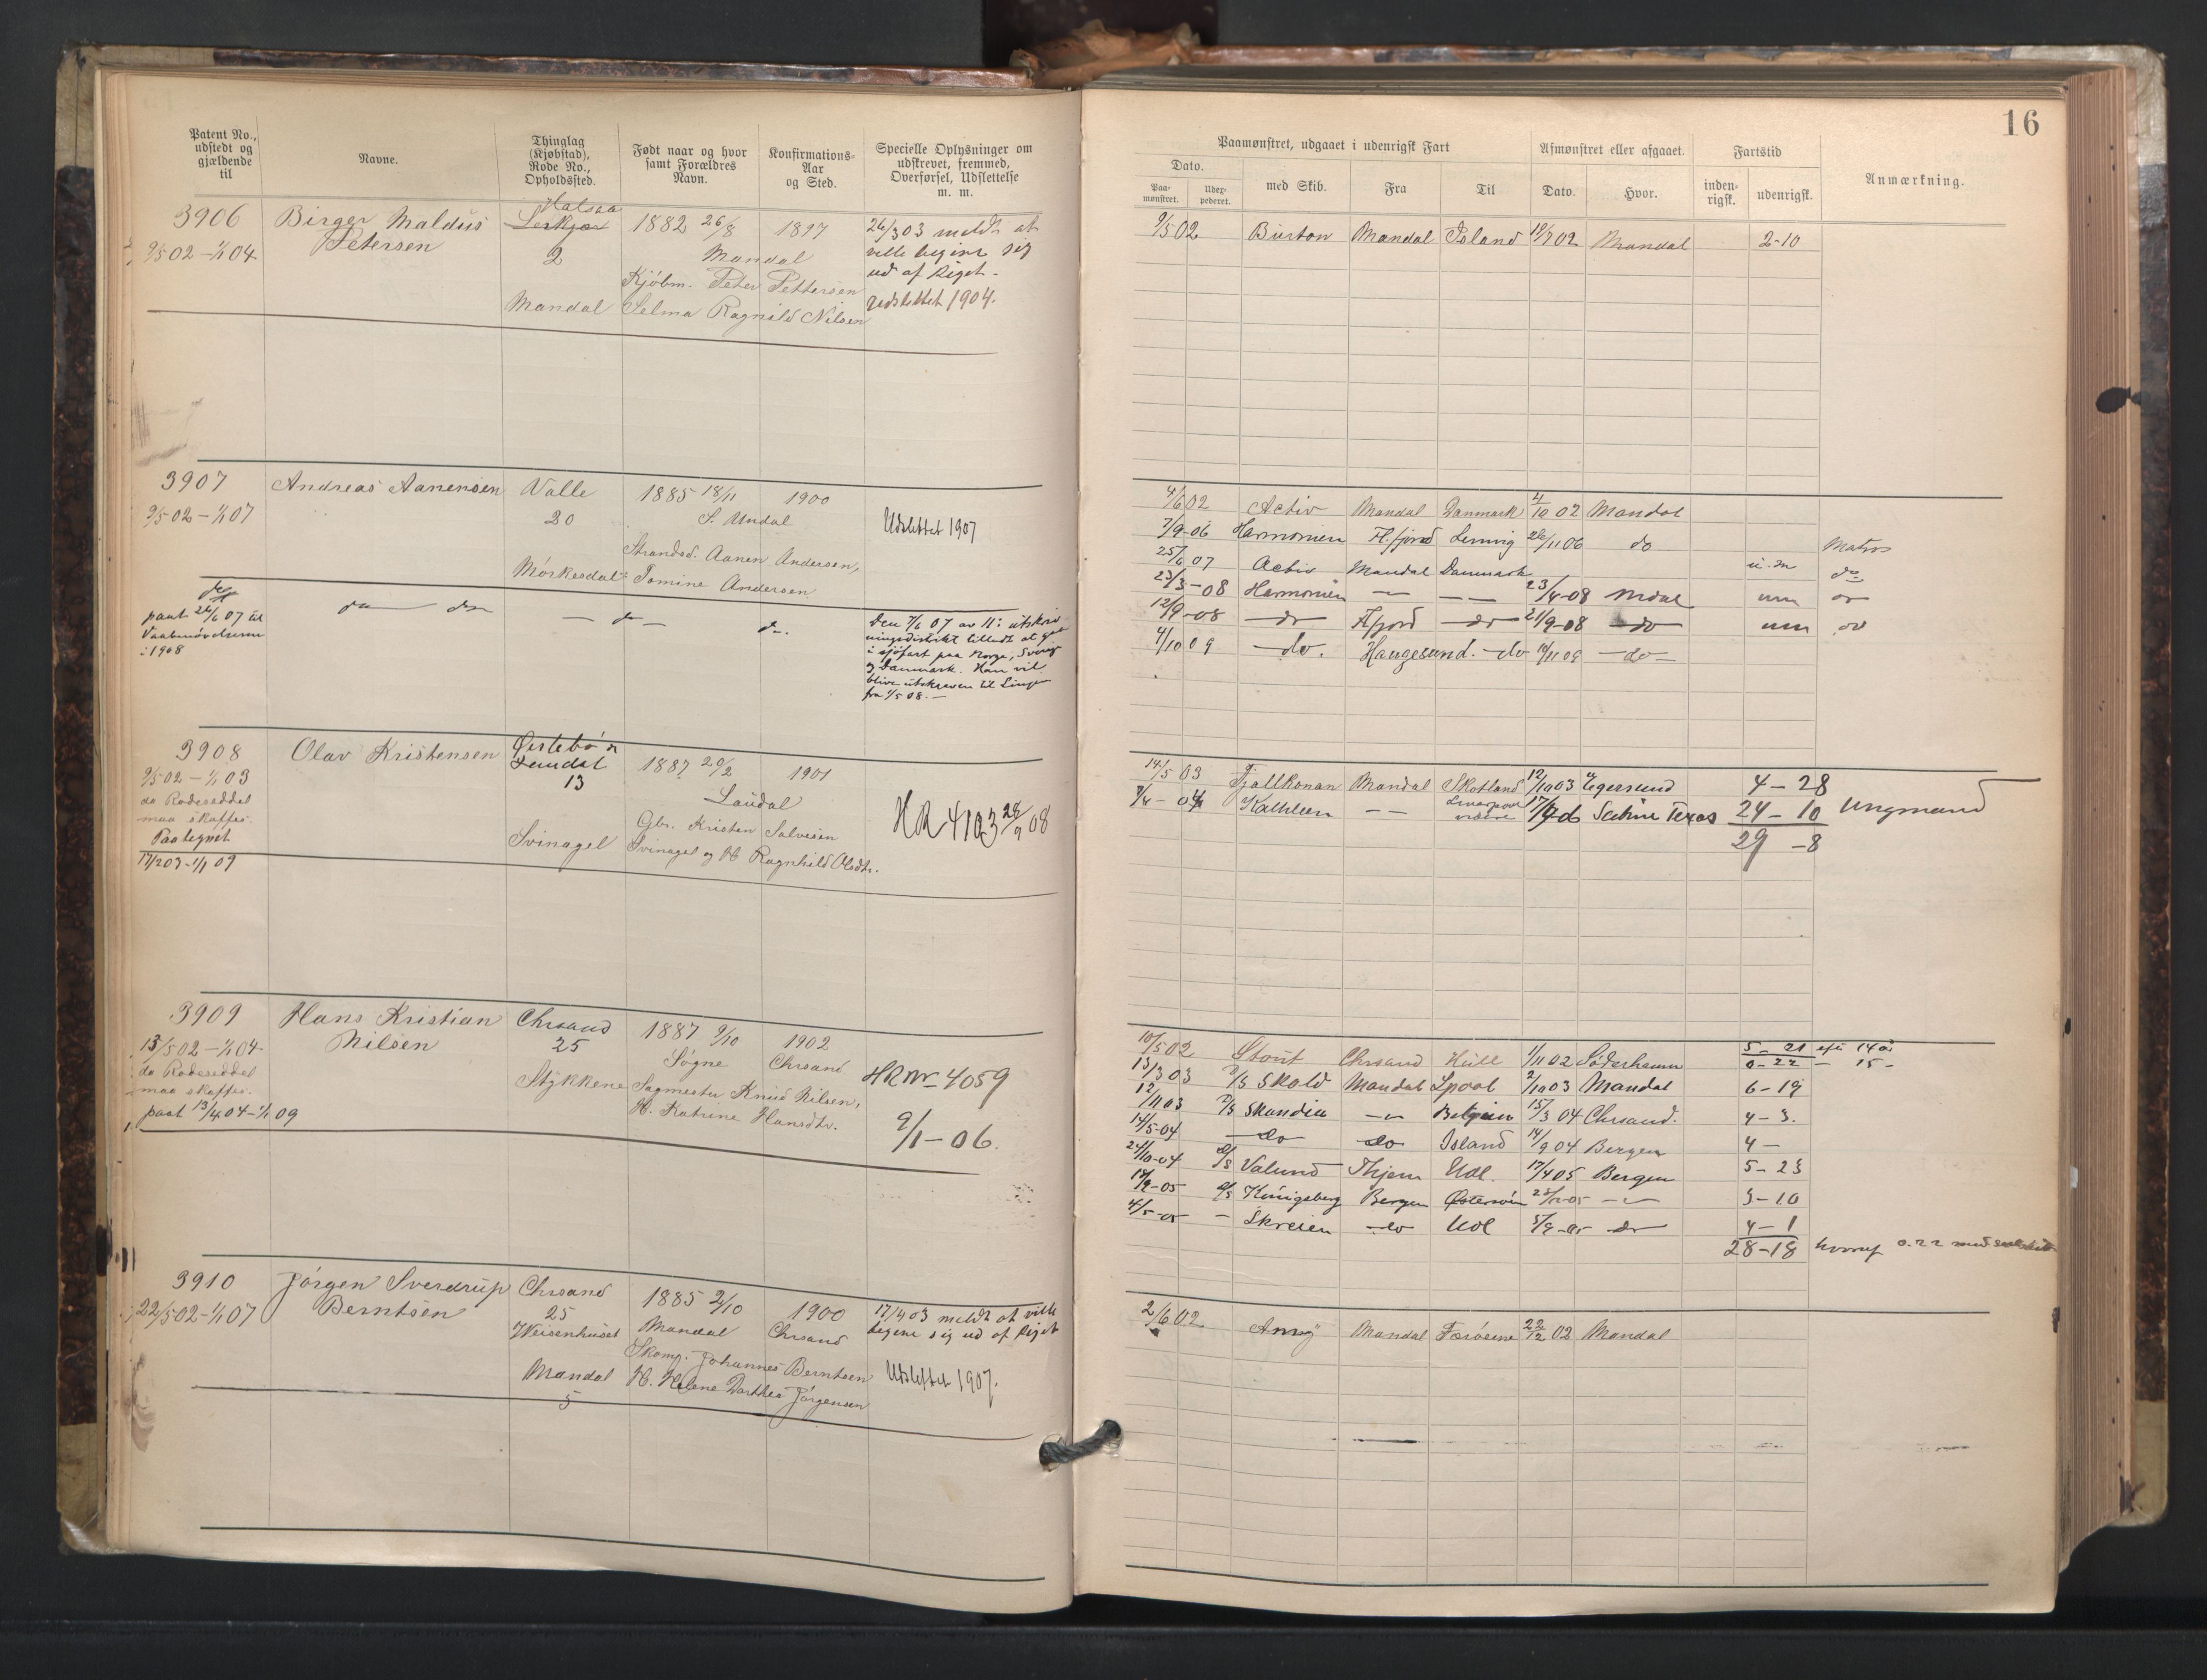 16
Patent No., udstedt og gjældende til
Navne.
Thinglag (Kjøbstad), Rode No., Opholdssted.
Født naar og hvor samt Forældres Navn.
Konfirmations-Aar og Sted.
Specielle Oplysninger om udskrevet, fremmed, Overførsel, Udslettelse m. m.
Paamønstret, udgaaet i udenrigsk Fart
Afmønstret eller afgaaet.
Fartstid
Anmærkning.
Dato.
Paa-mønstret.
med Skib.
Fra
Til
Dato.
Hvor.
inden-rigsk.
udenrigsk.
3906
9/5 02 – 1/1 04
Birger Maldus
Petersen
Halsaa
2
Mandal
1882 26/8 1897
Mandal
Kjøbm. Peter Pettersen
Selma Ragnild Nilsen
26/3 03 meldt at
ville begive sig
ud af Riget.
Udslettet 1904.
9/5 02 Burton Mandal Island 19/7 02 Mandal 2-10
3907
9/5 02 – 1/1 07
Andreas Aanensen
Valle
20
Mørkesdal
1885 18/11 1900
S. Undal
Strands. Aanen Andersen,
Tomine Andersen
Udslettet 1907
paat 26/6 07 til
Vaabenøvelserne
i 1908
do do do do.
Den 7/6 07 av II: utskriv
ningsdistrikt tilladt at gaa
i sjøfart paa Norge, Sverig
og Danmark. Han vil
blive utskreven til Linjen
fra 1/5 08. –
4/6 02 Activ Mandal Danmark 4/10 02 Mandal
7/9-06 Harmonien Fl.fjord Lemvig 26/11 06 do Matros
25/6 07 Activ Mandal Danmark u.m do
23/3-08 Harmonien – – 23/4-08 Mdal um do
12/9-08 do Fl.fjord do 21/9-08 do um do
4/10 09 do. Haugesund. do 19/11 09 do
3908
9/5 02 – 1/1 03
do Rodeseddel
maa skaffes.
Paategnet
17/12 03 – 1/1 09
Olav Kristensen
Øislebø &
Laudal
13
Svinagel
1887 20/2 1901
Laudal
Gbr. Kristen Salvesen
Svinagel og H. Ragnhild Olsdtr.
HR 4103 28/9 08
14/5 03 Fjallkonan Mandal Skotland 12/10 03 Egersund 4 – 28
Kathleen – – Sabine Texas 24 – 10 Ungmand
29 – 8
3909
13/5 02 – 1/1 04
do Rodeseddel
maa skaffes.
paat 13/4 04 – 1/1 09
Hans Kristian
Nilsen
Chrsand
25
Stykkene
1887 9/10 1902
Søgne Chrsand
Sagmester Knud Nilsen,
H. Katrine Hansdtr.
HR No 4059
9/1 – 06.
10/5 02 Stout Chrsand Hull 1/11 02 Söderhamn 5 – 21 eft 14 a
0 – 22 – 15 –
13/3 03 D/S Skold Mandal Lpool 2/10 03 Mandal 6 – 19
12/11 03 D/S Skandia – Belgien 15/3 04 Chrsand. 4 – 3.
14/5-04 do do Island 14/9 04 Bergen 4 –
24/10-04 D/S Valund Thjem Udl. 17/4 05 Bergen 5 – 23
D/S Königsberg Bergen Østersøn 3 – 10
4/5-05 – Skreien do Udl do 4 – 1
28 – 18 hvoraf 0.22 med
3910
22/5 02 – 1/1 07
Jørgen Sverdrup
Berntsen
Chrsand
25
Weisenhuset
Mandal
5
1885 2/10 1900
Mandal Chrsand
Skomg. Johannes Berntsen
H. Helene Dorthea Jørgensen
17/4 03 meldt at ville
begive sig ud af Riget
Udslettet 1907.
2/6 02 Anny Mandal Færøerne 22/12 02 Mandal